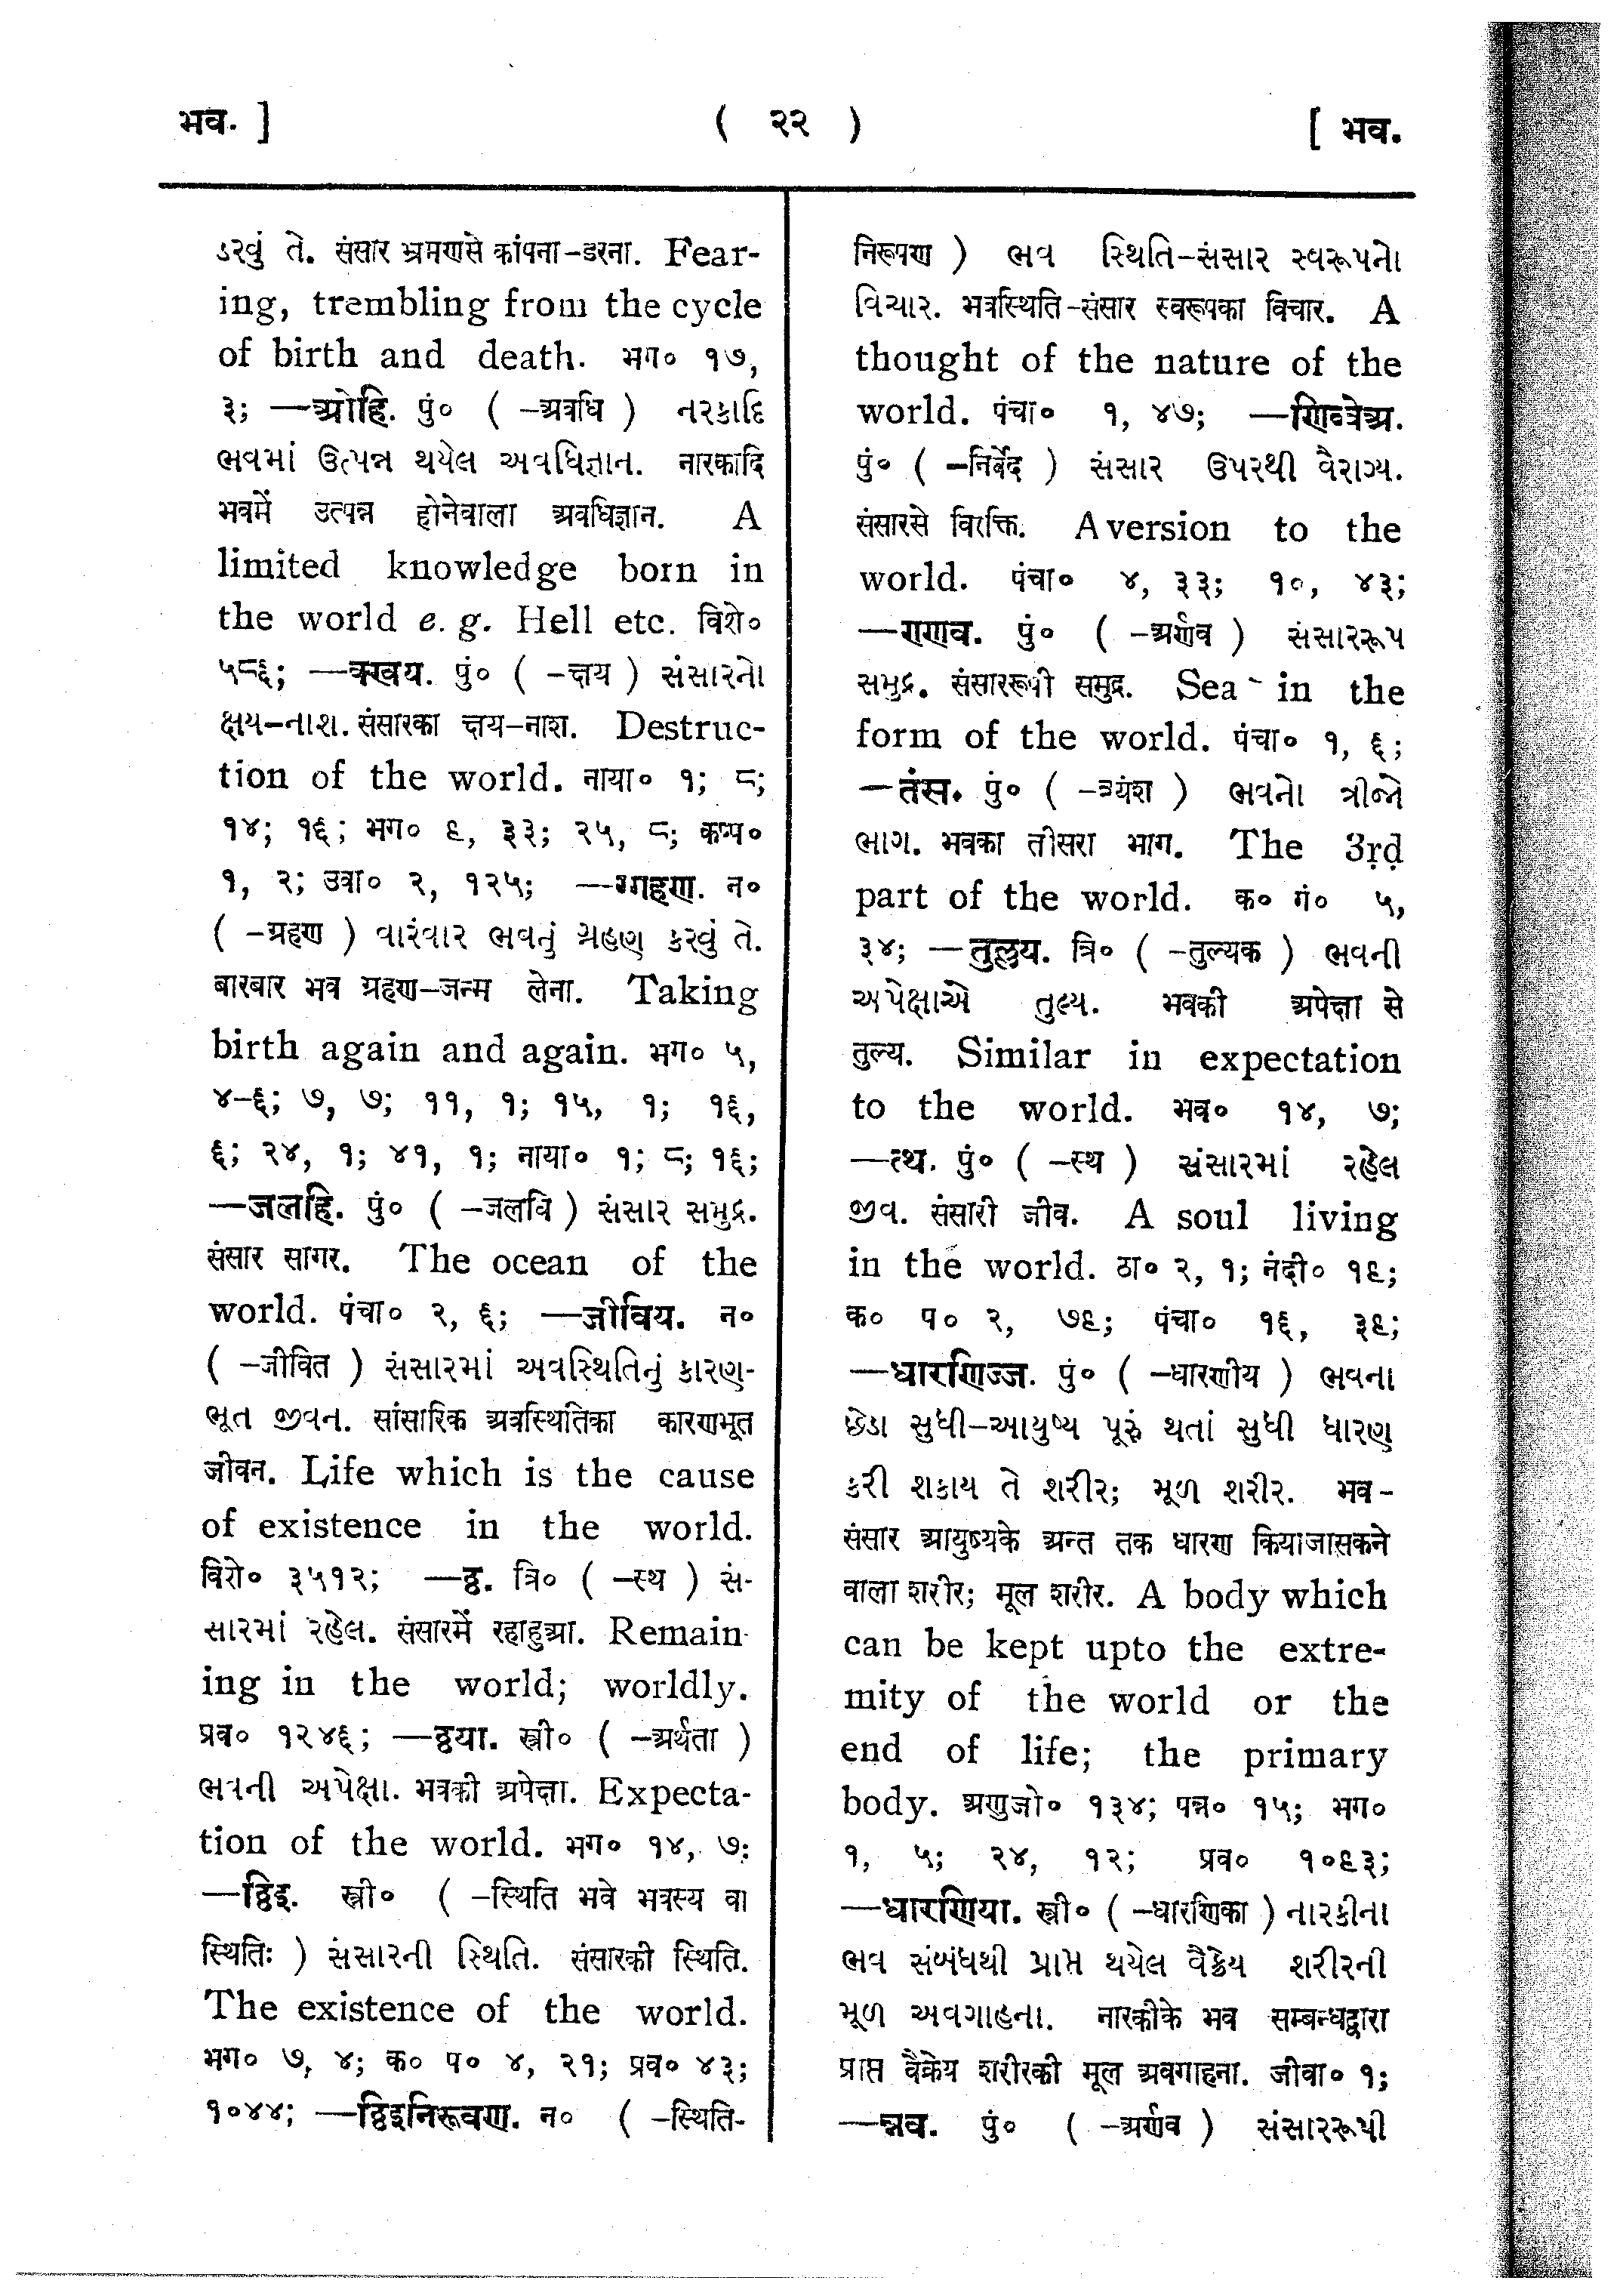 भव. ]
( २२ )
[ भव.
ડરવું તે. संसार भ्रमणसे कांपना-डरना. Fear-
ing, trembling from the cycle
of birth and death. भग० १७,
३; —ओहि. पुं० ( -अवधि ) નરકાદિ
ભવમાં ઉત્પન્ન થયેલ અવધિજ્ઞાન. नारकादि
भवमें उत्पन्न होनेवाला अवधिज्ञान. A
limited knowledge born in
the world e. g. Hell etc. विशे०
५८६; —क्खय. पुं० ( -क्षय ) સંસારનો
ક્ષય-નાશ. संसारका क्षय-नाश. Destruc-
tion of the world. नाया० १; ८;
१४; १६; भग० ६, ३३; २५, ८; कप्प०
१, २; उवा० २, १२५; —ग्गहण. न०
( -ग्रहण ) વારંવાર ભવનું ગ્રહણ કરવું તે.
बारबार भव ग्रहण-जन्म लेना. Taking
birth again and again. भग० ५,
४-६; ७, ७; ११, १; १५, १; १६,
६; २४, १; ४१, १; नाया० १; ८; १६;
—जलहि. पुं० ( -जलधि ) સંસાર સમુદ્ર.
संसार सागर. The ocean of the
world. पंचा० २, ६; —जीविय. न०
( -जीवित ) સંસારમાં અવસ્થિતિનું કારણ-
ભૂત જીવન. सांसारिक अवस्थितिका कारणभूत
जीवन. Life which is the cause
of existence in the world.
विशे० ३५१२; —ट्ठ. त्रि० ( -स्थ ) સં-
સારમાં રહેલ. संसारमें रहाहुआ. Remain-
ing in the world; worldly.
प्रव० १२४६; —ट्ठया. स्त्री० ( -अर्थता )
ભવની અપેક્ષા. भवकी अपेक्षा. Expecta-
tion of the world. भग० १४, ७;
—ट्ठिइ. स्त्री० ( -स्थिति भवे भवस्य वा
स्थितिः ) સંસારની સ્થિતિ. संसारकी स्थिति.
The existence of the world.
भग० ७, ४; क० प० ४, २१; प्रव० ४३;
१०४४; —ट्ठिइनिरूवण. न० ( -स्थिति-
निरूपण ) ભવ સ્થિતિ-સંસાર સ્વરૂપનો
વિચાર. भवस्थिति-संसार स्वरूपका विचार. A
thought of the nature of the
world. पंचा० १, ४७; —णिव्वेअ.
पुं० ( -निर्वेद ) સંસાર ઉપરથી વૈરાગ્ય.
संसारसे विरक्ति. Aversion to the
world. पंचा० ४, ३३; १०, ४३;
—ण्णव. पुं० ( -अर्णव ) સંસારરૂપ
સમુદ્ર. संसाररूपी समुद्र. Sea - in the
form of the world. पंचा० १, ६;
—तंस. पुं० ( -त्र्यंश ) ભવનો ત્રીજો
ભાગ. भवका तीसरा भाग. The 3rd
part of the world. क० गं० ५,
३४; —तुल्लय. त्रि० ( -तुल्यक ) ભવની
અપેક્ષાએ તુલ્ય. भवकी अपेक्षा से
तुल्य. Similar in expectation
to the world. भव० १४, ७;
—त्थ. पुं० ( -स्थ ) સંસારમાં રહેલ
જીવ. संसारी जीव. A soul living
in the world. ठा० २, १; नंदी० १६;
क० प० २, ७६; पंचा० १६, ३६;
—धारणिज्ज. पुं० ( -धारणीय ) ભવના
છેડા સુધી-આયુષ્ય પૂરું થતાં સુધી ધારણ
કરી શકાય તે શરીર; મૂળ શરીર. भव-
संसार आयुष्यके अन्त तक धारण कियाजासकने
वाला शरीर; मूल शरीर. A body which
can be kept upto the extre-
mity of the world or the
end of life; the primary
body. अणुजो० १३४; पन्न० १५; भग०
१, ५; २४, १२; प्रव० १०६३;
—धारणिया. स्त्री० ( -धारणिका ) નારકીના
ભવ સંબંધથી પ્રાપ્ત થયેલ વૈક્રેય શરીરની
મૂળ અવગાહના. नारकीके भव सम्बन्धद्वारा
प्राप्त वैक्रेय शरीरकी मूल अवगाहना. जीवा० १;
—न्नव. पुं० ( -अर्णव ) સંસારરૂપી